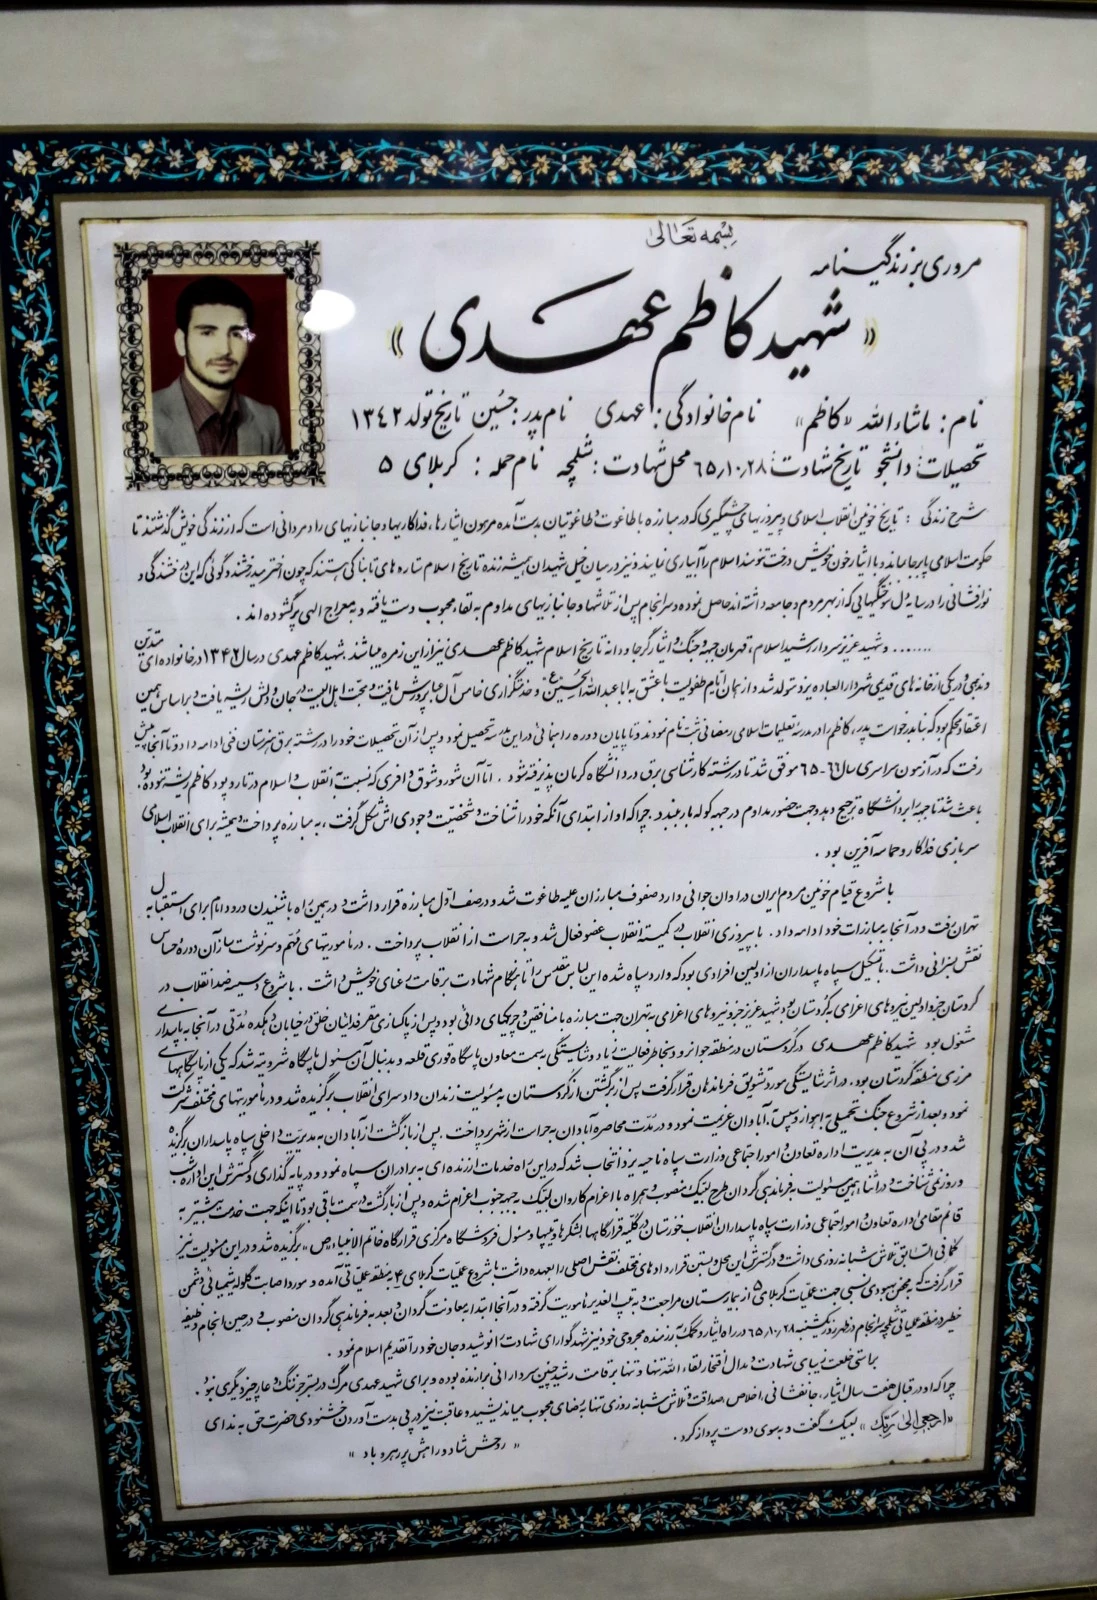 بِسْمِهِ تَعَالیٰ
مروری بر زندگینامه
« شهید کاظم عهدی »
نام: ماشاءالله «کاظم» نام خانوادگی: عهدی نام پدر: حُسین تاریخ تولد ۱۳۴۲
تحصیلات: دانشجو تاریخ شهادت: ۶۵/۱۰/۲۸ محل شهادت: شلمچه نام حمله: کربلای ۵
شرح زندگی: تاریخ خونین انقلاب اسلامی و پیروزیهای چشمگیری که در مبارزه با طاغوت و طاغوتیان بدست آمده مرهون ایثارها، فداکاریها و جانبازیهای رادمردانی است که از زندگی خویش گذشتند تا
حکومت اسلامی پابرجا بماند و با ایثار خون خویش درخت تنومند اسلام را آبیاری نمایند و نیز در میان خیل شهیدان همیشه زنده تاریخ اسلام ستاره های تابناکی هستند که چون اختر میدرخشند و گوئی که این درخشندگی و
نورافشانی را در سایه دل سوختگیهائی که از بهر مردم و جامعه داشته اند حاصل نموده و سرانجام پس از تلاشها و جانبازیهای مداوم به لقاء محبوب دست یافته و به معراج الهی پر گشوده اند.
....... و شهید عزیز سردار رشید اسلام، قهرمان جبهه و جنگ و ایثارگر جاودانه تاریخ اسلام شهید کاظم عهدی نیز از این زمره میباشند. شهید کاظم عهدی در سال ۱۳۴۲ در خانواده ای متدین
و مذهبی و در یکی از خانه های قدیمی شهر دارالعباده یزد متولد شد و از همان ایام طفولیت با عشق به اباعبدالله الحسین «ع» و خدمتگزاری خامس آل عبا پرورش یافت و محبت اهل البیت در جان و دلش ریشه یافت و بر اساس همین
اعتقاد محکم بود که بنابدرخواست پدر، کاظم را در مدرسه تعلیمات اسلامی رمضانی ثبت نام نمودند و تا پایان دوره راهنمائی در این مدرسه تحصیل نمود و پس از آن تحصیلات خود را در رشته برق هنرستان فنی ادامه داد و تا آنجا پیش
رفت که در آزمون سراسری سال ۶۶-۶۵ موفق شد تا در رشته کارشناسی برق در دانشگاه کرمان پذیرفته شود. امّا آن شور و شوق وافری که نسبت به انقلاب و اسلام در تار و پود کاظم ریشه نموده بود
باعث شد تا جبهه را بر دانشگاه ترجیح دهد و جهت حضور مداوم در جبهه کوله بار ببندد. چرا که او از ابتدای آنکه خود را شناخت و شخصیت وجودی اش شکل گرفت، به مبارزه پرداخت و همیشه برای انقلاب اسلامی
سربازی فداکار و حماسه آفرین بود.
با شروع قیام خونین مردم ایران در اوان جوانی وارد صفوف مبارزان علیه طاغوت شد و در صف اوّل مبارزه قرار داشت و در همین راه با شنیدن ورود امام برای استقبال به
تهران رفت و در آنجا به مبارزات خود ادامه داد. با پیروزی انقلاب در کمیته انقلاب عضو فعال شد و به حراست از انقلاب پرداخت. در مأموریتهای مهم و سرنوشت ساز آن دوره حساس
نقش بسزائی داشت. با تشکیل سپاه پاسداران از اولین افرادی بود که وارد سپاه شده این لباس مقدس را تا هنگام شهادت بر قامت رعنای خویش داشت. با شروع دسیسه ضد انقلاب در
کردستان جزو اولین نیروهای اعزامی به کردستان بود شهید عزیز جزو نیروهای اعزامی به تهران جهت مبارزه با منافقین و چریکهای فدائی بود و پس از پاکسازی مقر فدائیان خلق در خیابان دهکده مدتی در آنجا به پاسداری
مشغول بود شهید کاظم عهدی در کردستان در منطقه جوانرود بخاطر فعالیت زیاد و شایستگی به سمت معاون پاسگاه قوری قلعه و بدنبال آن مسئول پاسگاه شروینه شد که یکی از پاسگاههای
مرزی منطقه کردستان بود. در اثر شایستگی مورد تشویق فرماندهان قرار گرفت پس از برگشتن از کردستان به مسئولیت زندان دادسرای انقلاب برگزیده شد و در مأموریتهای مختلف شرکت
نمود و بعد از شروع جنگ تحمیلی به اهواز و سپس آبادان عزیمت نمود و در مدّت محاصره آبادان به حراست از شهر پرداخت. پس از بازگشت از آبادان به مدیریت داخلی سپاه پاسداران برگزیده
شد و در پی آن به مدیریت اداره تعاون و امور اجتماعی وزارت سپاه ناحیه یزد انتخاب شد که در این راه خدمات ارزنده ای به برادران سپاه نمود و در پایه گذاری و گسترش این اداره شب
و روز نمی شناخت و در اثناء همین مسئولیت به فرماندهی گردان طرح لبیک منصوب و همراه با اعزام کاروان لبیک به جبهه جنوب اعزام شده و پس از بازگشت در سمت باقی بود تا اینکه جهت خدمت بیشتر به
قائم مقامی اداره تعاون و امور اجتماعی وزارت سپاه پاسداران انقلاب خوزستان در کلیه قرارگاهها، لشکرها و تیپها و مسئول فروشگاه مرکزی قرارگاه خاتم الانبیاء «ص» برگزیده شد و در این مسئولیت نیز
کمافی السابق تلاش شبانه روزی داشت و در گسترش این محل و بستن قراردادهای مختلف نقش اصلی را بعهده داشت با شروع عملیات کربلای ۴ به منطقه عملیاتی آمده و مورد اصابت گلوله شیمیائی دشمن
قرار گرفت که به محض بهبودی نسبی جهت عملیات کربلای ۵ از بیمارستان مراجعت و به تیپ الغدیر مأموریت گرفته و در آنجا ابتدا به معاونت گردان و بعد به فرماندهی گردان منصوب و در حین انجام وظیفه
خطیر در منطقه عملیاتی شلمچه سرانجام در ظهر روز یکشنبه ۶۵/۱۰/۲۸ در راه ایثار و کمک به رزمنده مجروحی خود نیز شهد گوارای شهادت را نوشید و جان خود را تقدیم اسلام نمود.
براستی خلعت زیبای شهادت و مدال افتخار لقاء الله تنها و تنها بر قامت رشید چنین سردارانی برازنده بوده و برای شهید عهدی مرگ در بستر جز ننگ و عار چیز دیگری نبود.
چرا که او در قبال هفت سال ایثار، جانفشانی، اخلاص، صداقت و تلاش شبانه روزی تنها به رضای محبوب میاندیشید و عاقبت نیز در پی بدست آوردن خشنودی حضرت حق به ندای
«ارجعی الی ربک» لبیک گفت و به سوی دوست پرواز کرد.
« روحش شاد و راهش پر رهرو باد »